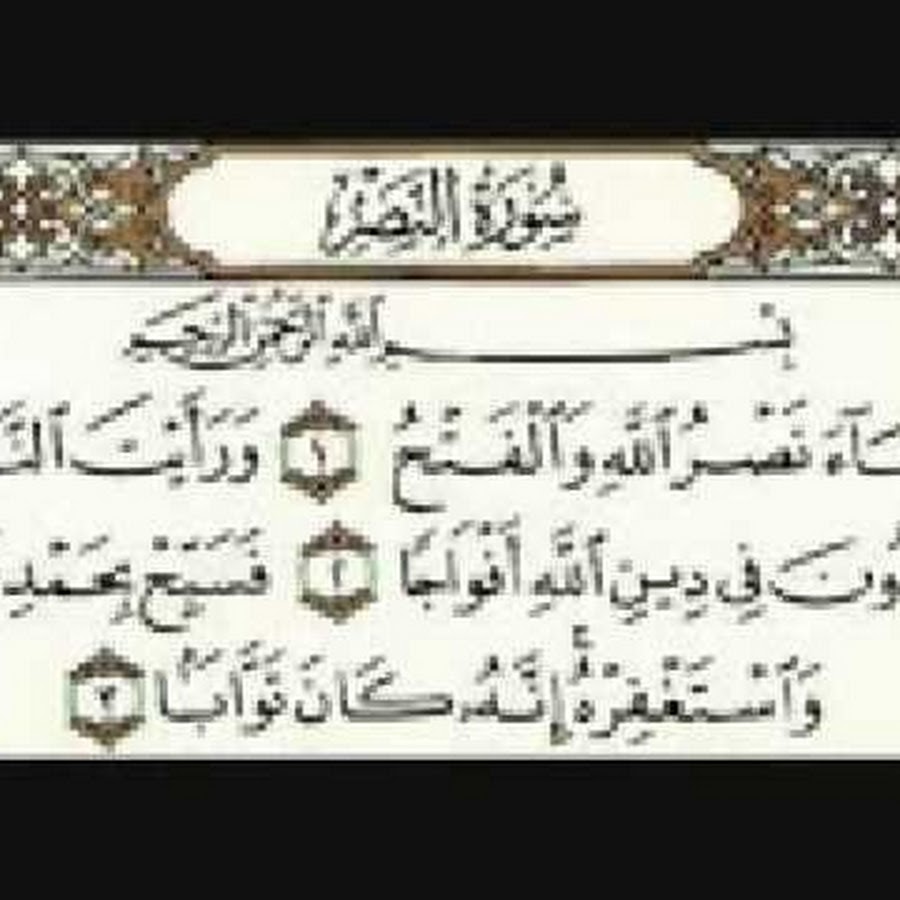 سُورَةُ النَّصْرِ
بِسْمِ ٱللَّهِ ٱلرَّحْمَٰنِ ٱلرَّحِيمِ
نَصْرُ ٱللَّهِ وَٱلْفَتْحُ ١ وَرَأَيْتَ
فِى دِينِ ٱللَّهِ أَفْوَاجًا ٢ فَسَبِّحْ بِحَمْدِ
وَٱسْتَغْفِرْهُ إِنَّهُۥ كَانَ تَوَّابًۢا ٣